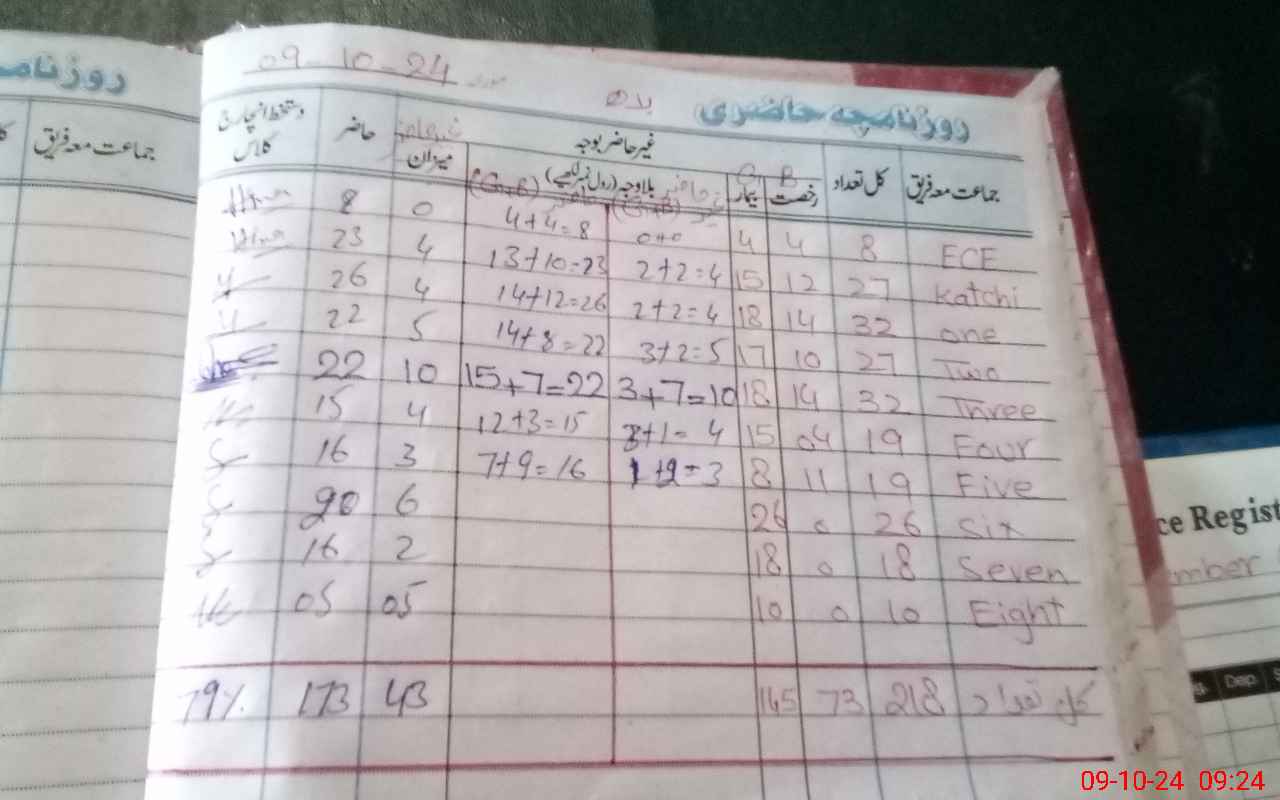 روزنامچہ
جماعت معہ فریق
09-10-24 مورخہ
بدھ
روزنامچہ حاضری
جماعت معہ فریق کل تعداد غیر حاضر بوجہ میزان حاضر دستخط انچارج کلاس
رخصت بیمار بلاوجہ (رول نمبر لکھیے)
B G (G+B) (G+B)
ECE 8 4 4 0+0 4+4=8 0 8 Hina
Katchi 27 12 15 2+2=4 13+10=23 4 23 Hina
one 32 14 18 2+2=4 14+12=26 4 26
Two 27 10 17 3+2=5 14+8=22 5 22
Three 32 14 18 3+7=10 15+7=22 10 22
Four 19 04 15 3+1=4 12+3=15 4 15
Five 19 11 8 1+2=3 7+9=16 3 16
Six 26 0 26 6 20
Seven 18 0 18 2 16
Eight 10 0 10 05 05
کل تعداد 218 73 145 43 173 79%
ce Regist
mber
Dep.
09-10-24 09:24